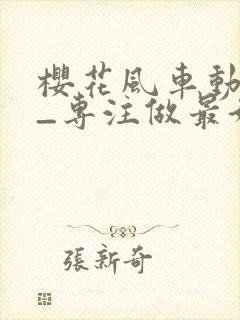 櫻花風車動
_專注做最
張新奇